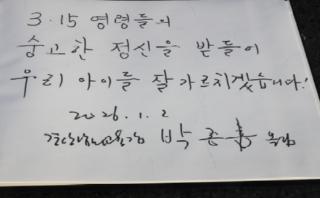 3.15 영령들의
숭고한 정신을 받들어
우리 아이들 잘 가르치겠습니다!
2026. 1. 2
경상남도교육감 박종훈